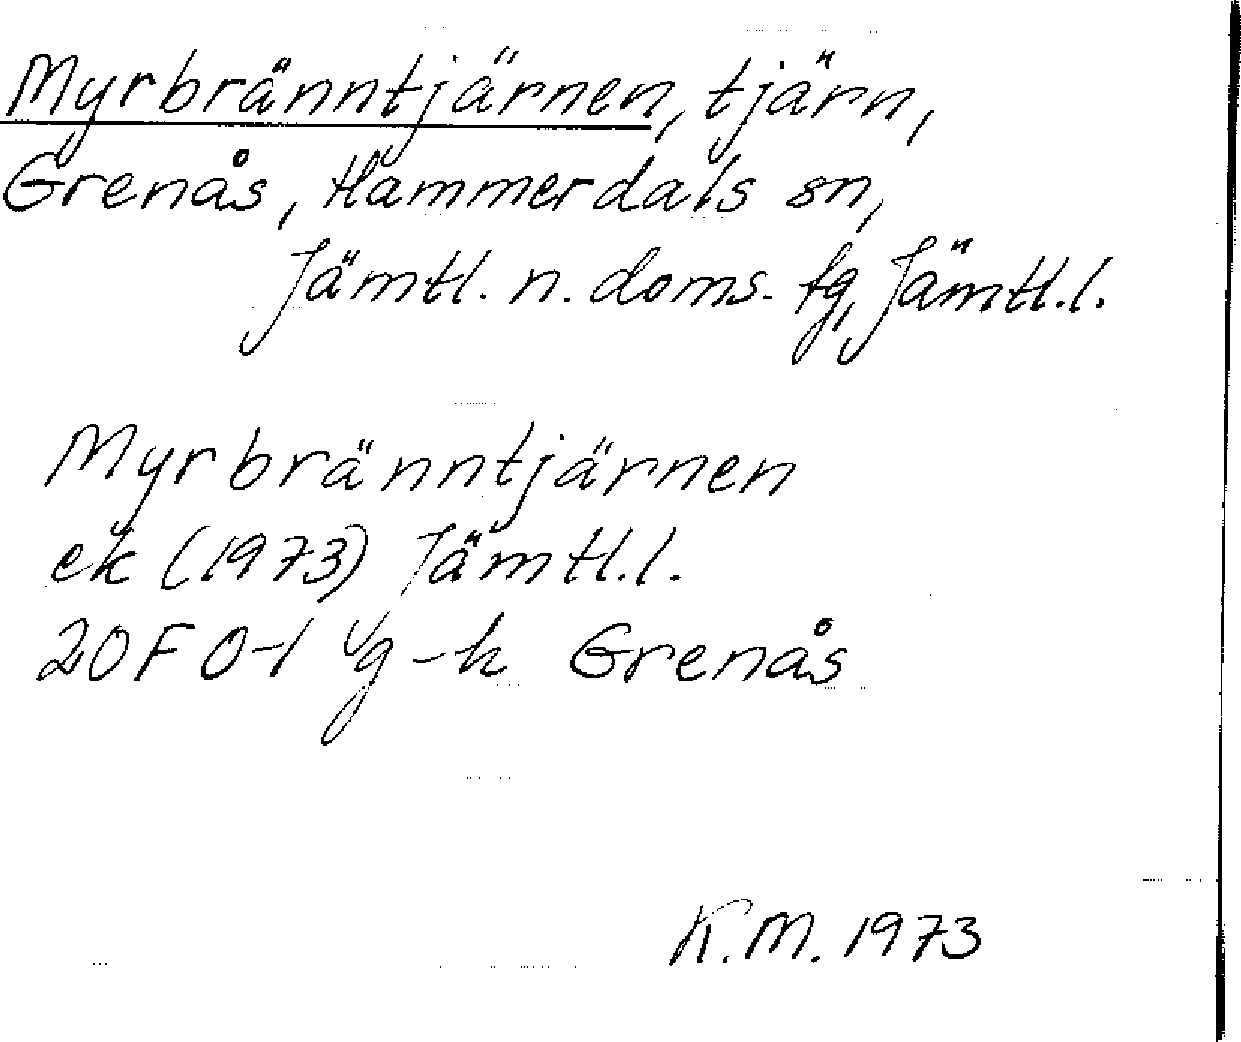 Myrbränntjärnen, tjärn,
Grenås, Hammerdals sn,
Jämtl. n. doms. fg, Jämtl.l.
Myrbränntjärnen
ek (1973) Jämtl.l.
20F 0-1 g-h Grenås
K.M. 1973